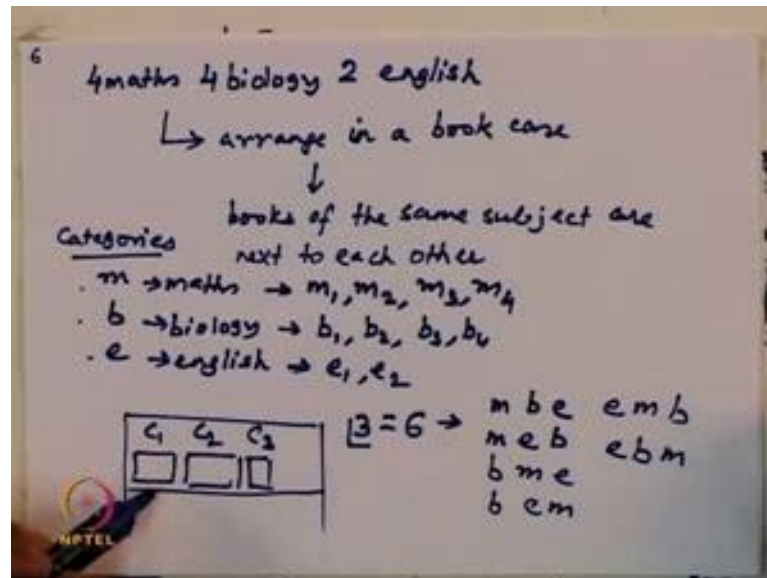 6
4 maths 4 biology 2 english
↳ arrange in a book case
↓
books of the same subject are
next to each other
Categories
. m → maths → m₁, m₂, m₃, m₄
. b → biology → b₁, b₂, b₃, b₄
. e → english → e₁, e₂
C₁ C₂ C₃
|3 = 6 →
m b e e m b
m e b e b m
b m e
b e m
NPTEL